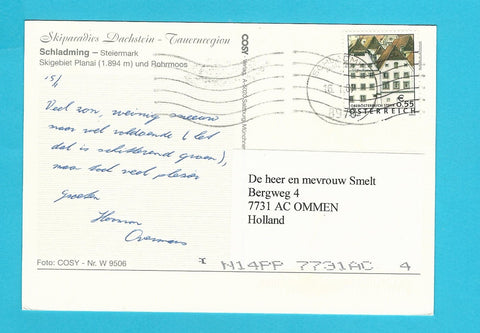 Skiparadies Dachstein - Tauernregion
Schladming – Steiermark
Skigebiet Planai (1.894 m) und Rohrmoos
15/1
Veel zon, weinig sneeuw
maar wel voldoende (het
dal is schitterend groen),
maar toch veel plezier
Groeten
Herman
Overmars
Foto: COSY - Nr. W 9506
COSY Verlag
Salzburg
€ 0,55
ÖSTERREICH
De heer en mevrouw Smelt
Bergweg 4
7731 AC OMMEN
Holland
N14PP 7731AC 4